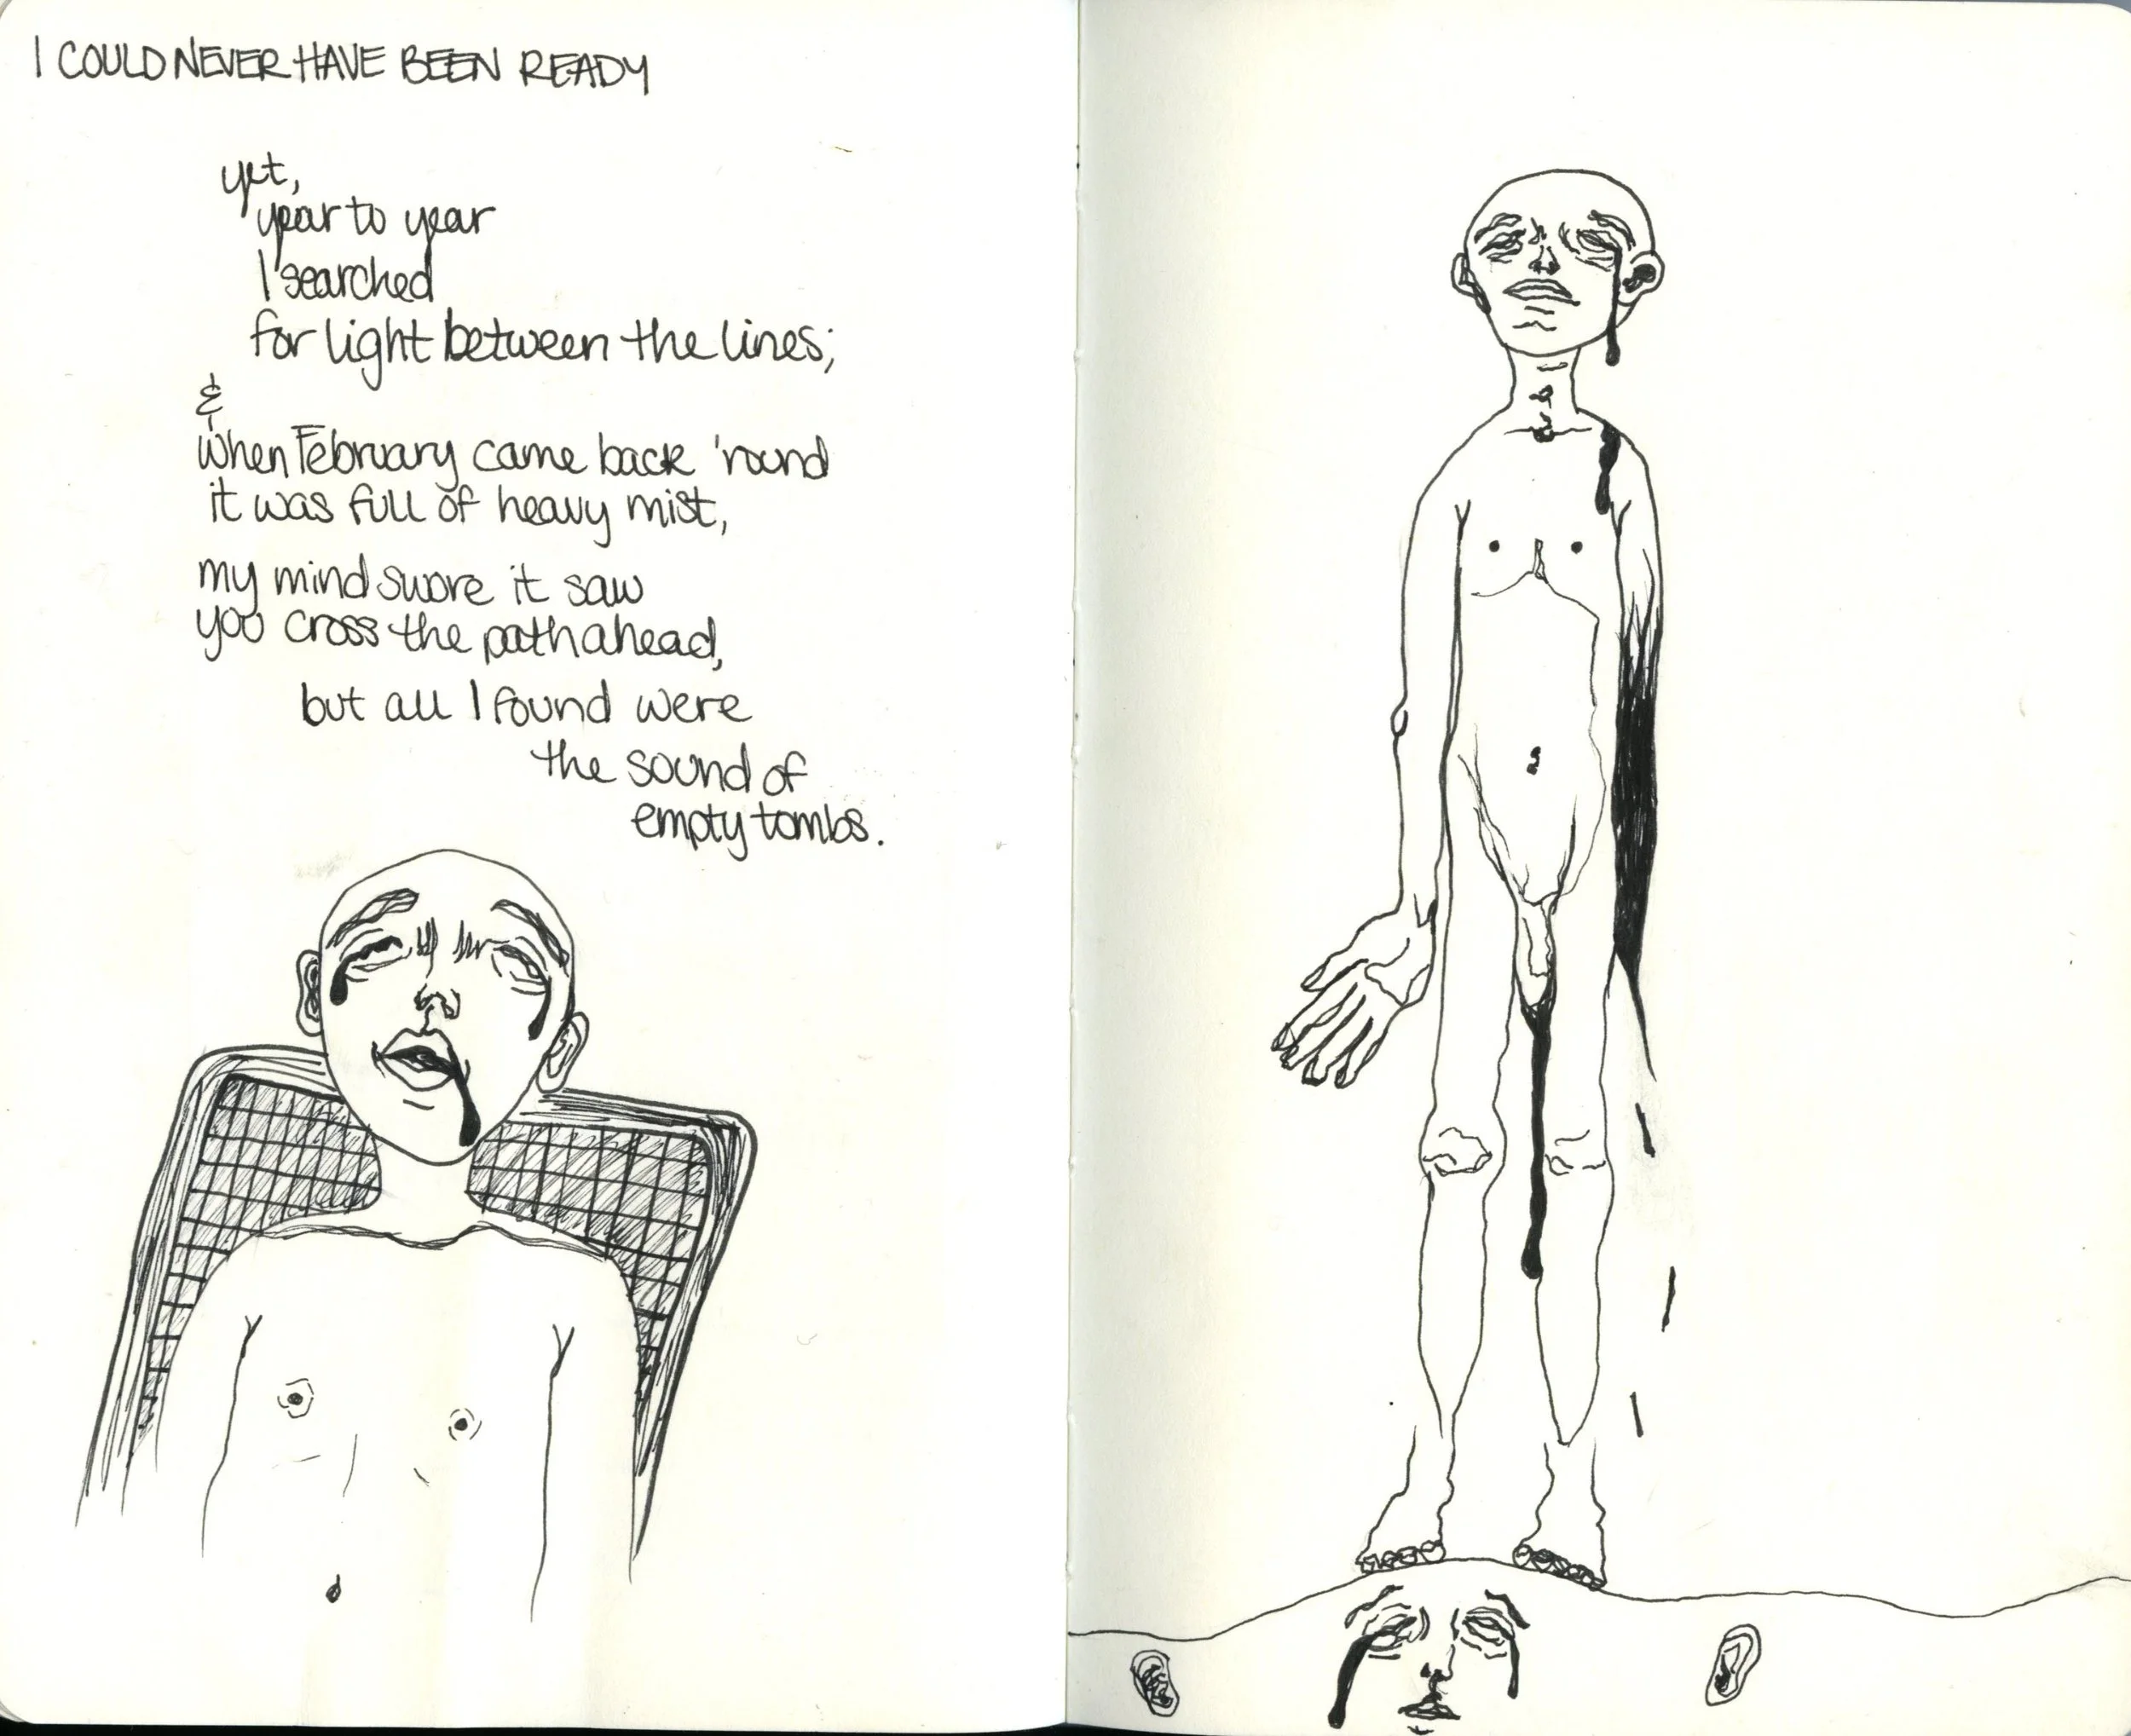 I COULD NEVER HAVE BEEN READY
yet,
year to year
I searched
for light between the lines;
&
when February came back 'round
it was full of heavy mist,
my mind swore it saw
you cross the path ahead,
but all I found were
the sound of
empty tombs.